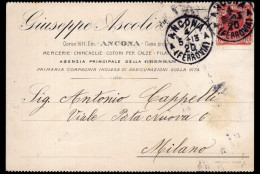 Giuseppe Ascoli
Corso Vitt. Em. - ANCONA - Casa
MERCERIE - CHINCAGLIE - COTONI PER CALZE - FILA
AGENZIA PRINCIPALE DELLA
PRIMARIA COMPAGNIA INGLESE DI ASSICURAZIONI SULLA VITA
ANCONA
(FERROVIA)
20
Sig. Antonio Cappelli
Viale Porta Nuova 6
Milano